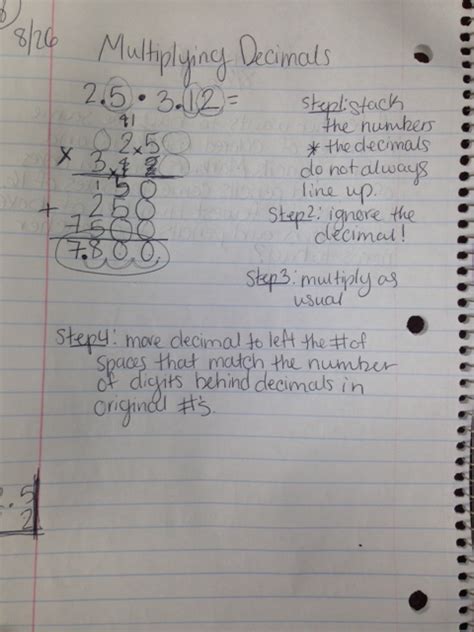 8/26
Multiplying Decimals
2.5 · 3.12 =
step1: stack
the numbers
* the decimals
do not always
line up.
Step2: ignore the
decimal!
Step3: multiply as
usual
025
x 3.12
50
+ 250
7500
7.800
Step4: move decimal to left the # of
spaces that match the number
of digits behind decimals in
original #'s.
5
2